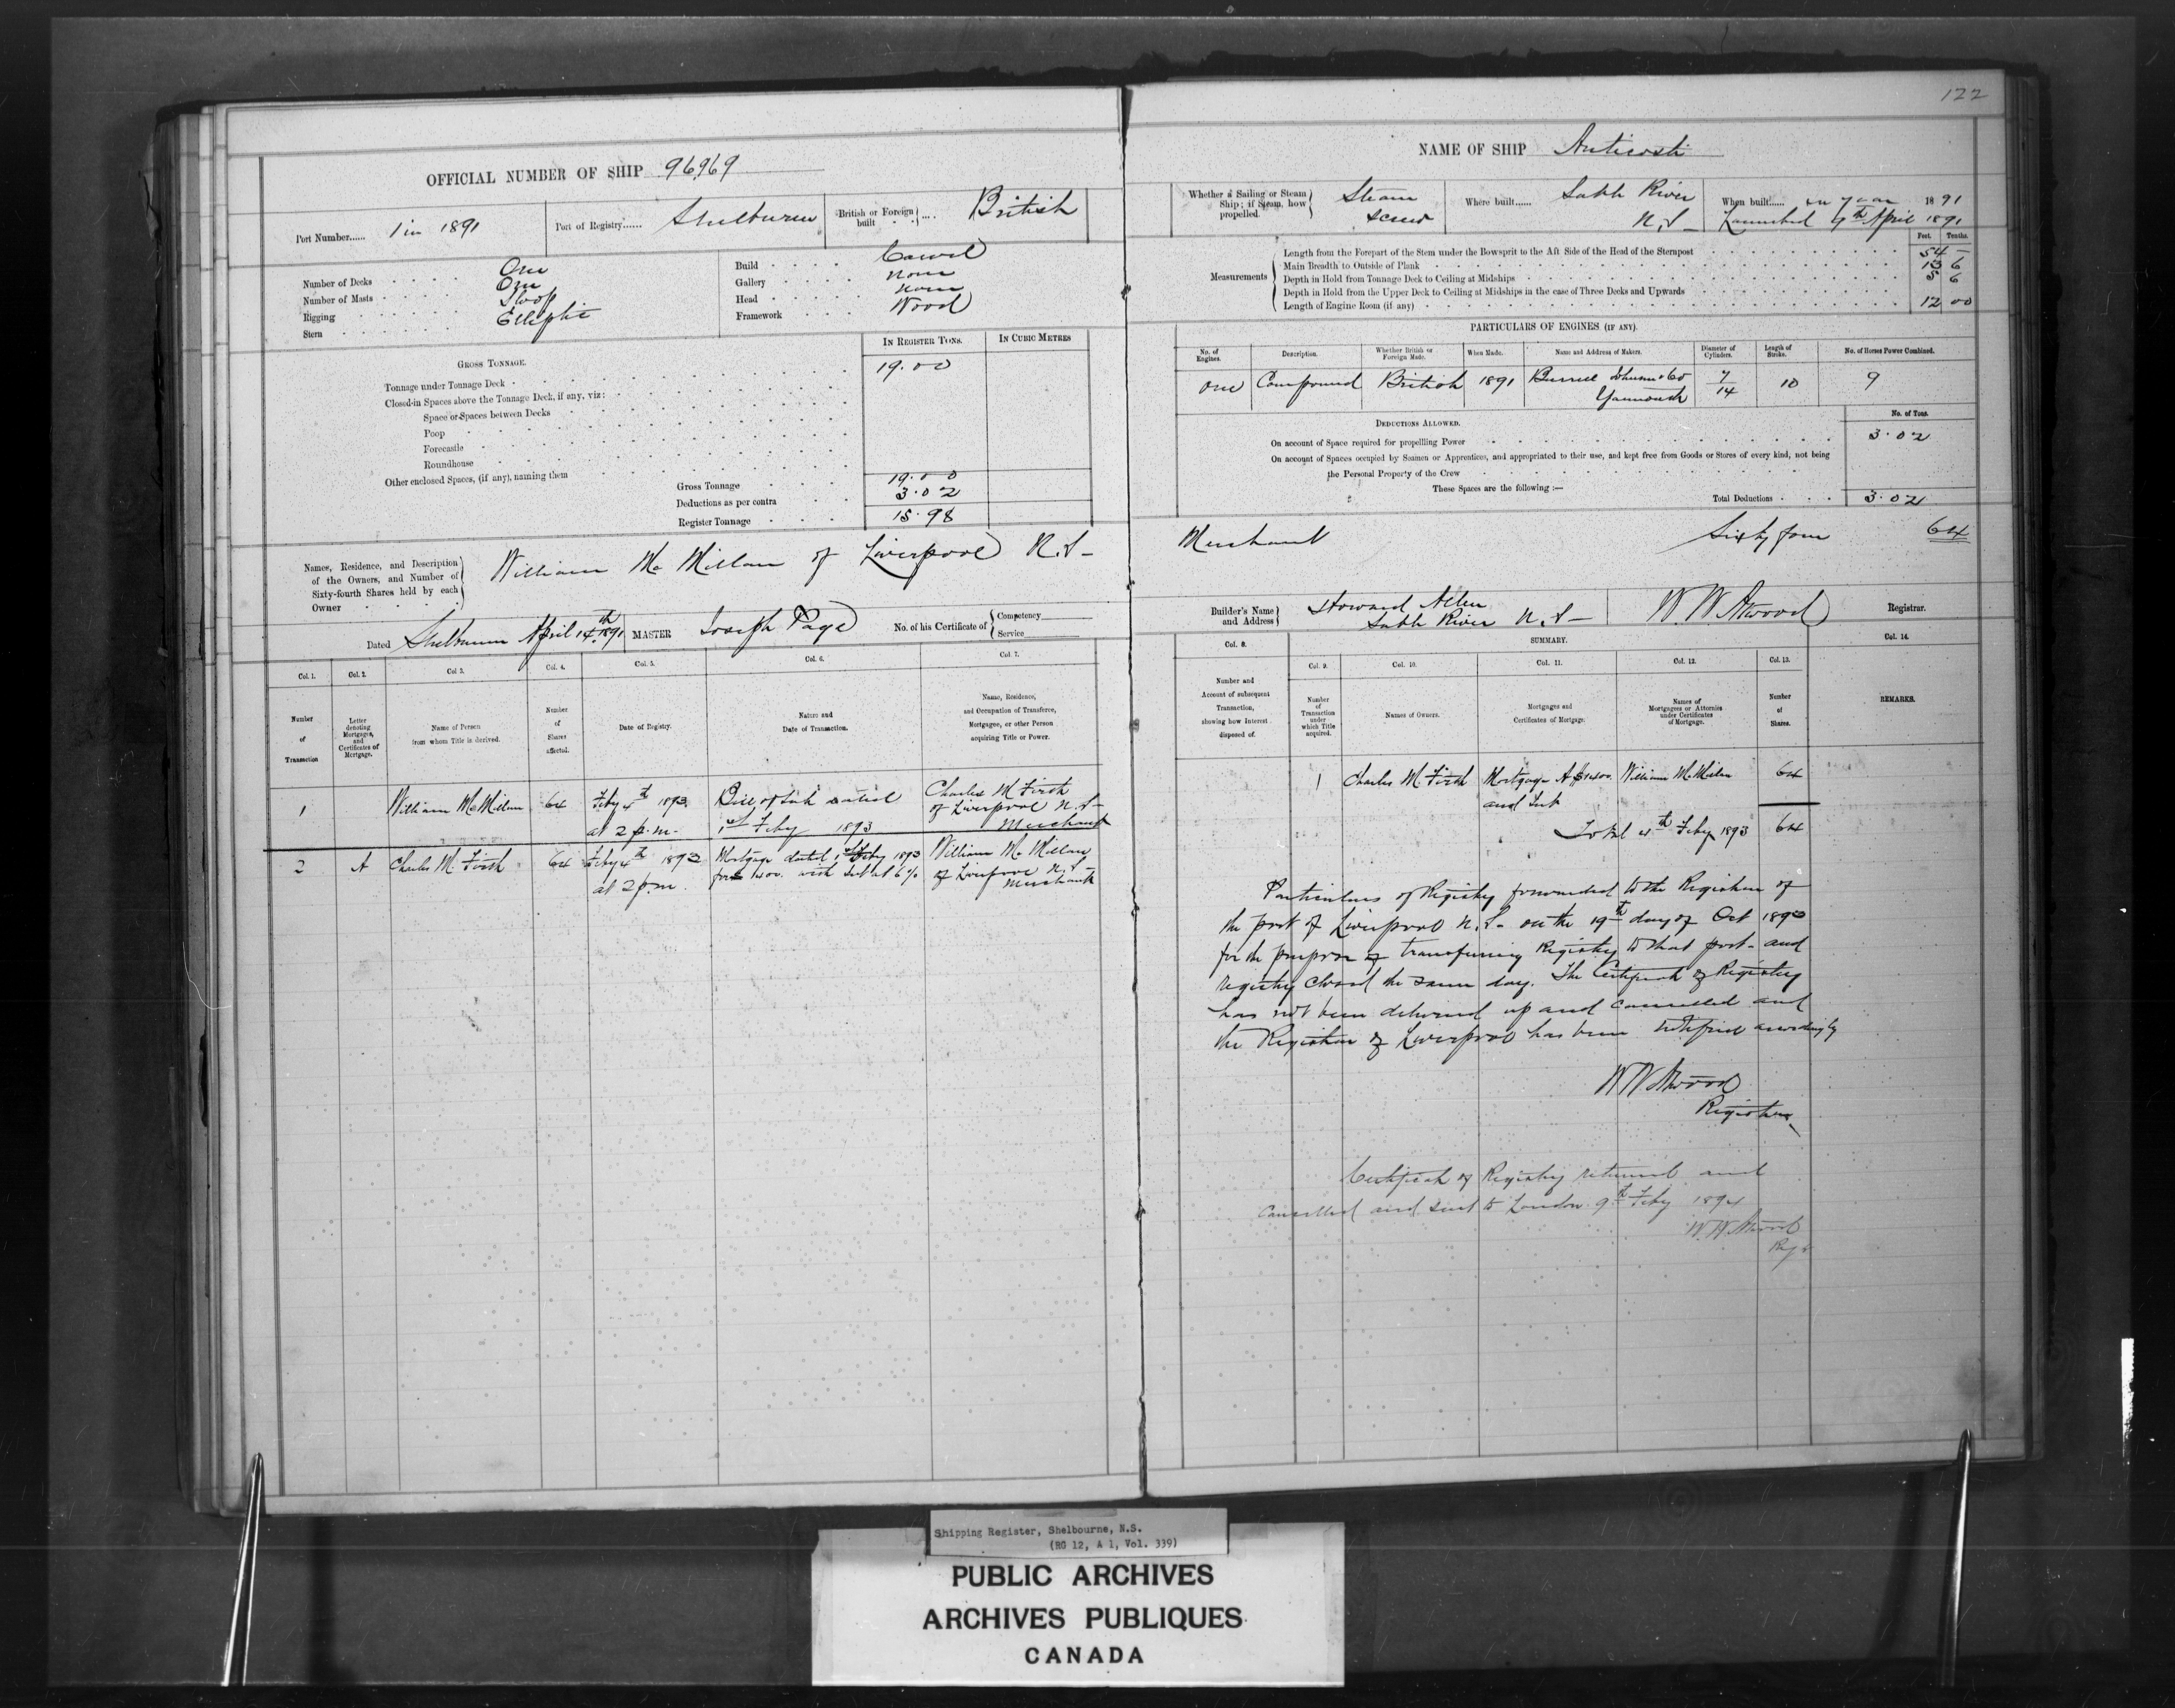 122
OFFICIAL NUMBER OF SHIP 96969
Port Number...... 1 in 1891
Port of Registry...... Shelburne
British or Foreign built ... British
Number of Decks One
Number of Masts One
Rigging Sloop
Stern Elliptic
Build Carvel
Gallery None
Head None
Framework Wood
IN REGISTER TONS. IN CUBIC METRES
GROSS TONNAGE.
Tonnage under Tonnage Deck 19.00
Closed-in Spaces above the Tonnage Deck, if any, viz:
Space or Spaces between Decks
Poop
Forecastle
Roundhouse
Other enclosed Spaces, (if any), naming them
Gross Tonnage 19.00
Deductions as per contra 3.02
Register Tonnage 15.98
Names, Residence, and Description of the Owners, and Number of Sixty-fourth Shares held by each Owner
William McMillan of Liverpool N.S-
Dated Shelburne April 14th 1891 MASTER Joseph Page No. of his Certificate of Competency Service
Col. 1. Col. 2. Col 3. Col. 4. Col. 5. Col. 6. Col. 7.
Number of Transaction
Letter denoting Mortgages, and Certificates of Mortgage.
Name of Person from whom Title is derived.
Number of Shares affected.
Date of Registry.
Nature and Date of Transaction.
Name, Residence, and Occupation of Transferee, Mortgagee, or other Person acquiring Title or Power.
1 William McMillan 64 Feby 4th 1893 at 2 p.m- Bill of Sale dated 1st Feby 1893 Charles M Firth of Liverpool N.S- Merchant
2 A Charles M. Firth 64 Feby 4th 1893 at 2 p.m. Mortgage dated 1st Feby 1893 for 1400. with Int at 6% William McMillan of Liverpool N.S- Merchant
NAME OF SHIP Anticosti
Whether a Sailing or Steam Ship; if Steam, how propelled. Steam Screw
Where built...... Sable River N.S-
When built...... in year 1891
Launched 7th April 1891
Feet. Tenths.
Measurements
Length from the Forepart of the Stem under the Bowsprit to the Aft Side of the Head of the Sternpost 54 -
Main Breadth to Outside of Plank 13 6
Depth in Hold from Tonnage Deck to Ceiling at Midships 5 6
Depth in Hold from the Upper Deck to Ceiling at Midships in the case of Three Decks and Upwards
Length of Engine Room (if any) 12 00
PARTICULARS OF ENGINES (IF ANY).
No. of Engines. Description. Whether British or Foreign Made. When Made. Name and Address of Makers. Diameter of Cylinders. Length of Stroke. No. of Horses Power Combined.
One Compound British 1891 Burrell Johnson & Co Yarmouth 7/14 10 9
DEDUCTIONS ALLOWED. No. of Tons.
On account of Space required for propelling Power 3.02
On account of Spaces occupied by Seamen or Apprentices, and appropriated to their use, and kept free from Goods or Stores of every kind, not being
the Personal Property of the Crew
These Spaces are the following :—
Total Deductions 3.02
Merchant Sixty four 64
Builder's Name and Address Howard Allen Sable River N.S- W.W Atwood Registrar.
SUMMARY.
Col. 8. Col. 9. Col. 10. Col. 11. Col. 12. Col. 13. Col. 14.
Number and Account of subsequent Transaction, showing how Interest disposed of.
Number of Transaction under which Title acquired.
Names of Owners.
Mortgages and Certificates of Mortgage.
Names of Mortgagees or Attornies under Certificates of Mortgage.
Number of Shares.
REMARKS.
1 Charles M Firth Mortgage A $1400. and Int William McMillan 64
Total 4th Feby 1893 64
Particulars of Registry forwarded to the Registrar of
the port of Liverpool N.S- on the 19th day of Oct 1893
for the purpose of transferring Registry to that port- and
registry closed the same day. The Certificate of Registry
has not been delivered up and cancelled and
the Registrar of Liverpool has been notified accordingly
W W Atwood
Registrar
Certificate of Registry returned and
Cancelled and sent to London 9th Feby 1894
W.W. Atwood
Regr
Shipping Register, Shelbourne, N.S.
(RG 12, A 1, Vol. 339)
PUBLIC ARCHIVES
ARCHIVES PUBLIQUES
CANADA